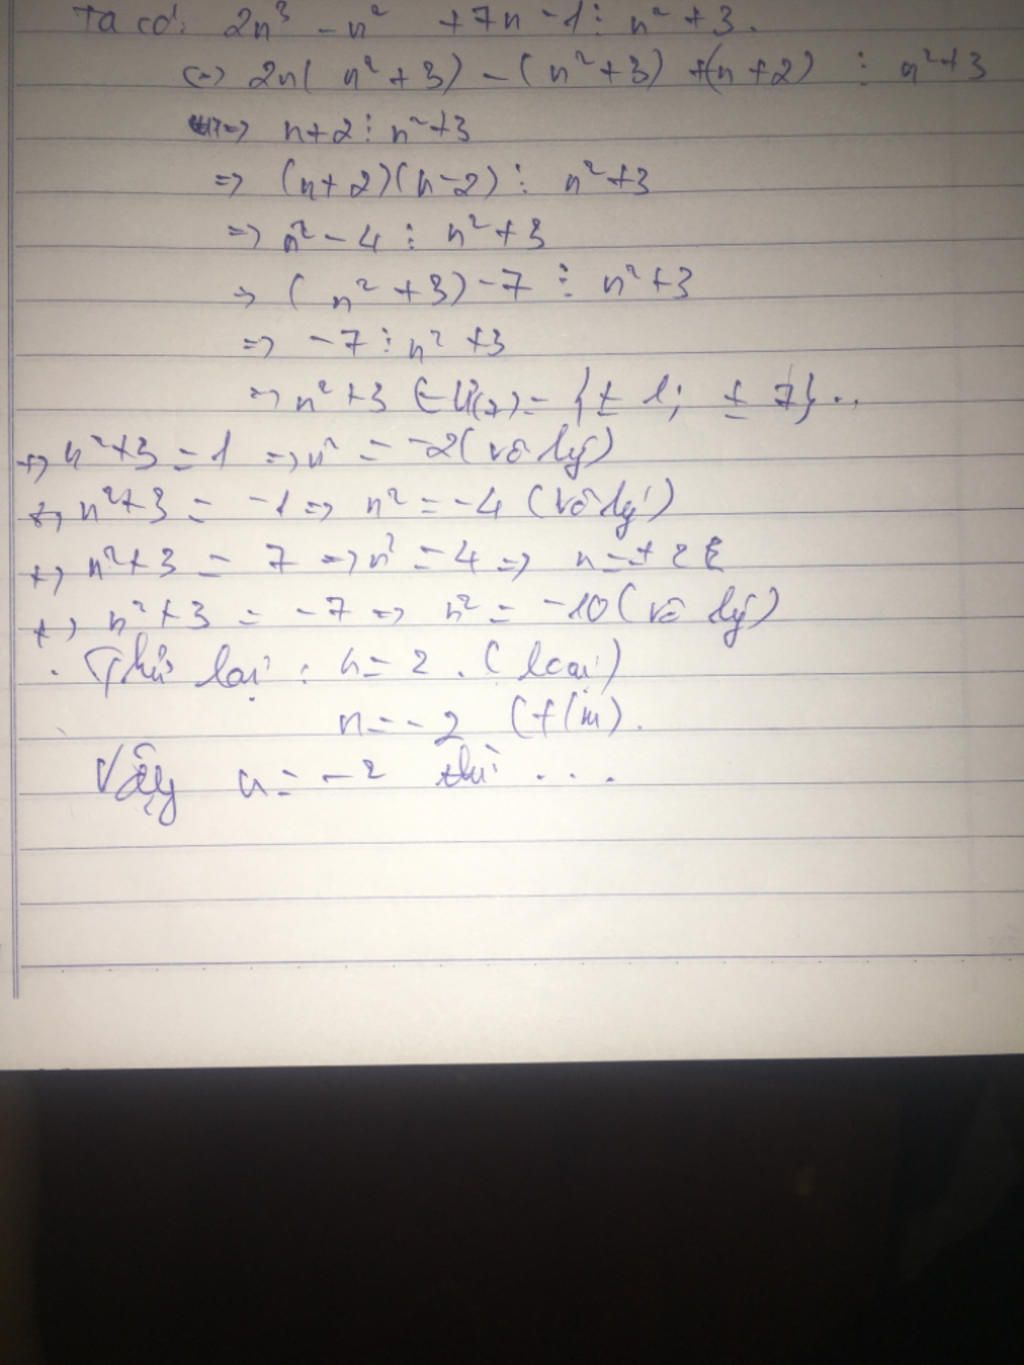 Ta có: 2n³ - n² + 7n - 1 ⋮ n² + 3.
(=) 2n( n² + 3) - (n² + 3) + (n + 2) ⋮ n² + 3
=> n + 2 ⋮ n² + 3
=> (n + 2)(n - 2) ⋮ n² + 3
=> n² - 4 ⋮ n² + 3
=> (n² + 3) - 7 ⋮ n² + 3
=> -7 ⋮ n² + 3
=> n² + 3 ∈ Ư(7) = {± 1; ± 7}..
+, n² + 3 = 1 => n² = -2 (vô lý)
+, n² + 3 = -1 => n² = -4 (vô lý)
+, n² + 3 = 7 => n² = 4 => n = ± 2
+, n² + 3 = -7 => n² = -10 (vô lý)
. Thử lại: n = 2. (loại)
n = -2 (t/m).
Vậy n = -2 thì ...